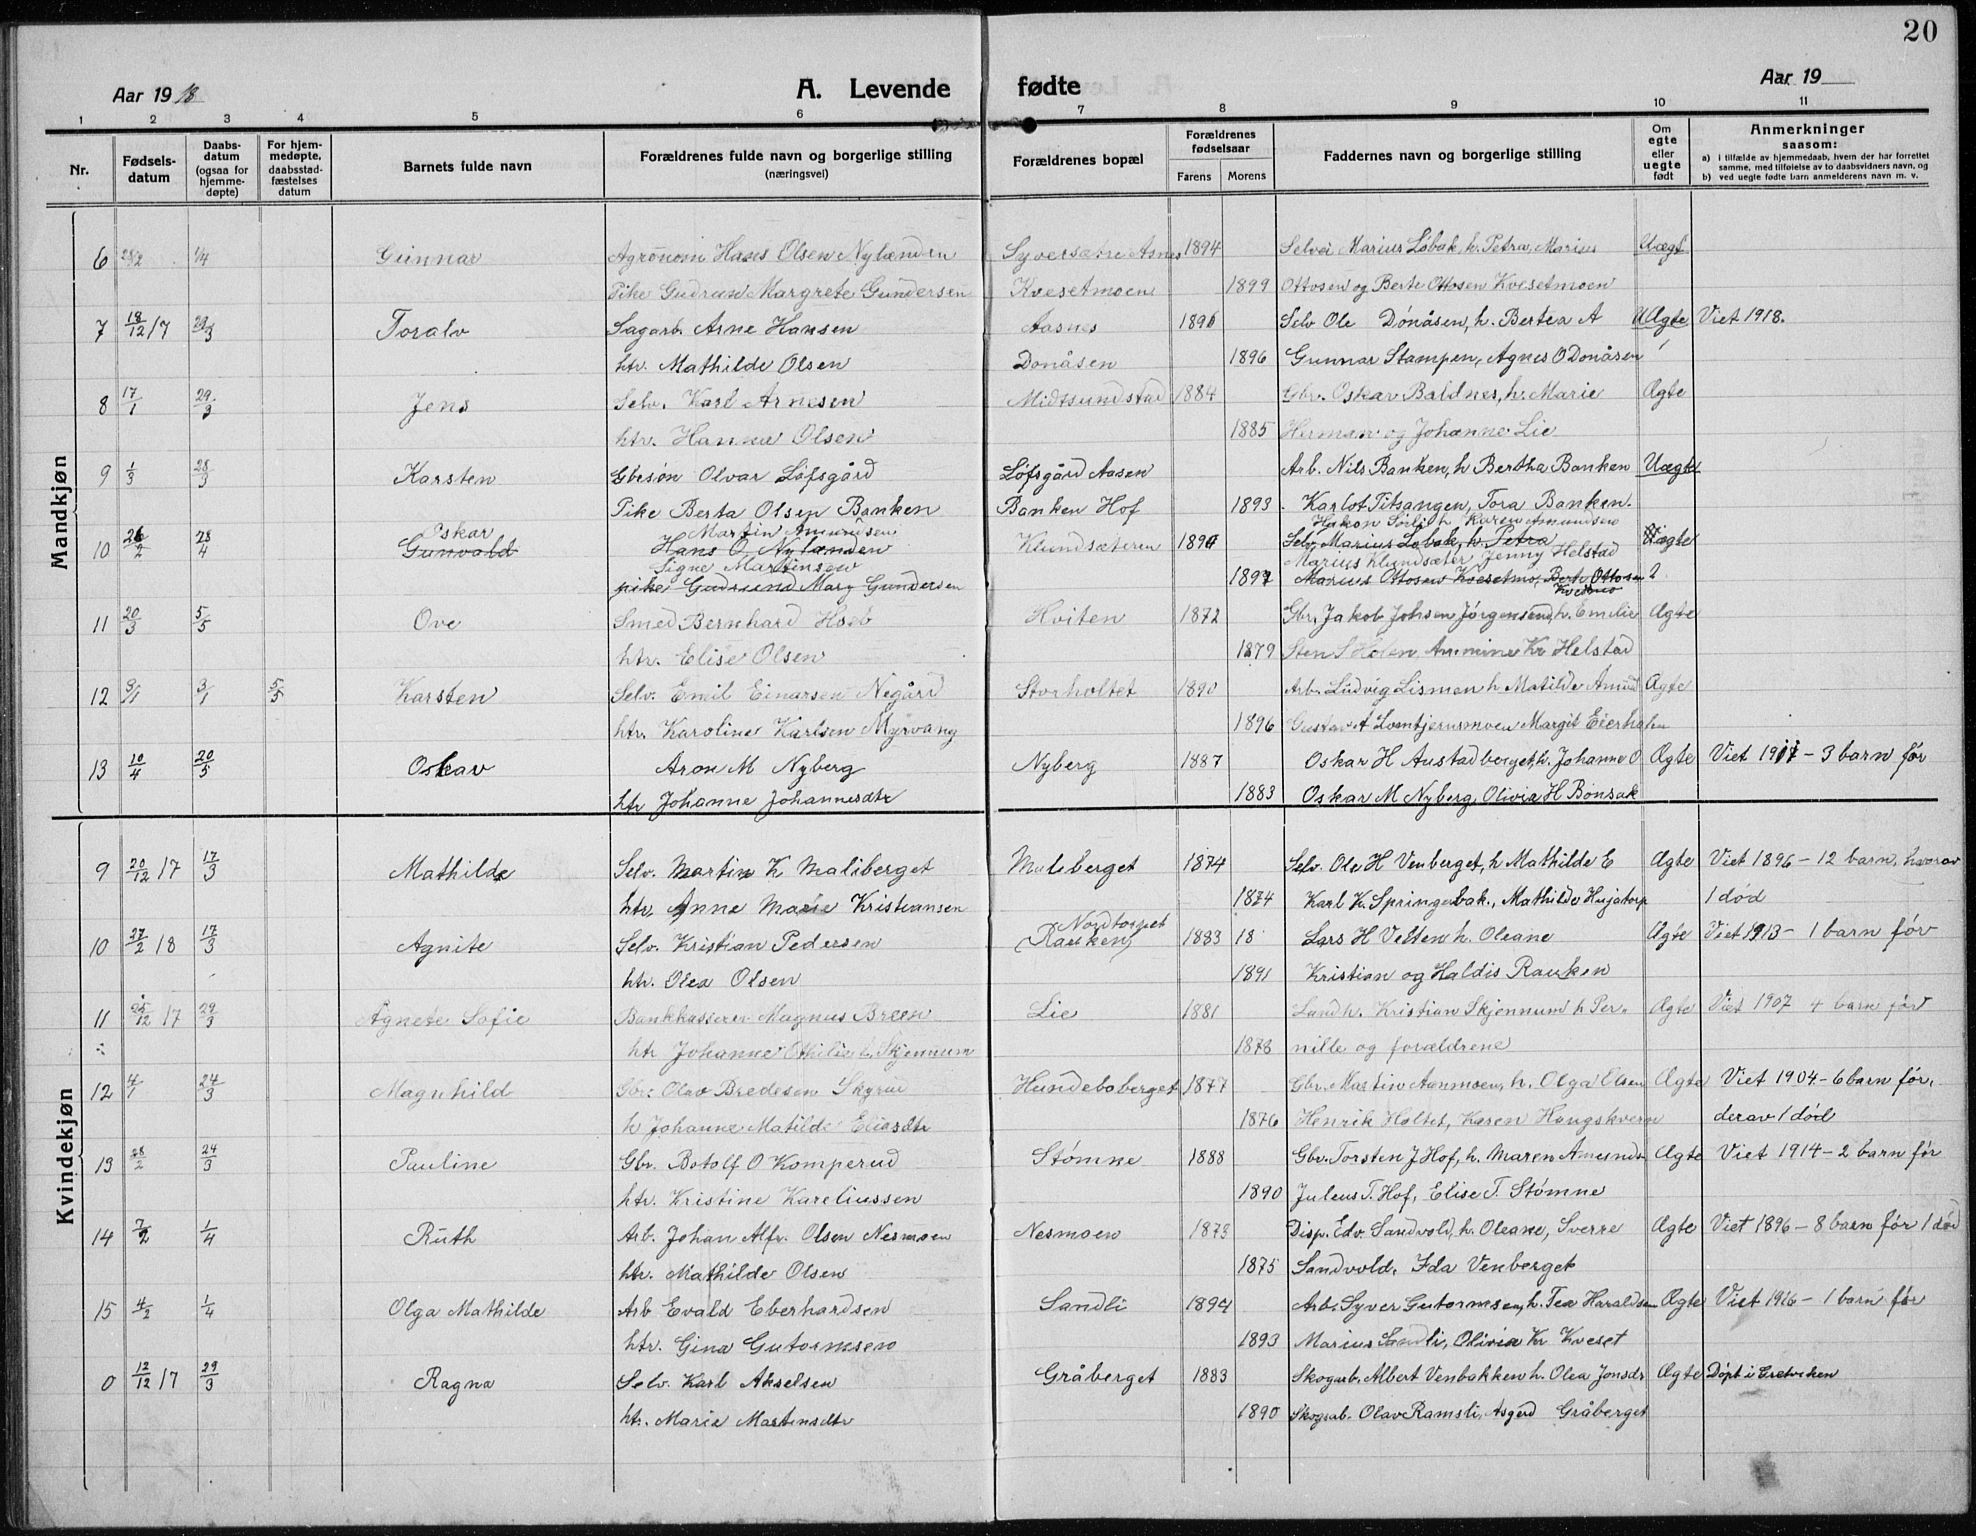 20
Aar 1918 A. Levende fødte Aar 19
1 2 3 4 5 6 7 8 9 10 11
Nr. Fødsels-datum Daabs-datum (ogsaa for hjemme-døpte) For hjem-medøpte, daabsstad-fæstelses datum Barnets fulde navn Forældrenes fulde navn og borgerlige stilling (næringsvei) Forældrenes bopæl Forældrenes fødselsaar Farens Morens Faddernes navn og borgerlige stilling Om egte eller uegte født Anmerkninger saasom:
a) i tilfælde av hjemmedaab, hvem der har forrettet samme, med tilføielse av to daabsvidners navn, og
b) ved uegte fødte barn anmelderens navn m. v.
Mandkjøn
6 28/2 1/4 Gunnar Agronom Hans Olsen Nylænden Syversætre Asnes 1894 Selvei Marius Løbak, h. Petra, Marius Uægt
Pike Gudrun Margrete Gundersen Kvesetmoen 1899 Ottosen og Berte Ottosen Kvesetmoen
7 18/12 17 29/3 Toralv Sagarb. Arne Hansen Aasnes 1896 Selv Ole Dónåsen, h. Bertea A UÆgte Viet 1918.
htr. Mathilde Olsen Donåsen 1896 Gunnar Stampen, Agnes O Donåsen
8 17/1 29/3 Jens Selv. Karl Arnesen Midtsundstad 1884 Gbr. Oskar Baldnes, h. Marie Ægte
htr. Hanna Olsen 1885 Herman og Johanne Lie
9 1/3 28/3 Karsten Gbesøn Olvar Løfsgård Løfsgård Aasen Arb. Nils Banken, h Bertha Banken Uægte
Pike Berta Olsen Banken Banken Hof 1893 Karlot Titsangen, Tora Banken.
Oskar Martin Amundsen Hakon Sørli h Karen Amundsen
10 26/2 28/4 Gunvald Hans O. Nylænden Klundsæteren 1890 Selv. Marius Løbak, h. Petra Uægte
Signe Martinsen Marius Klundsæter Jenny Helstad
pike Gudrund Marg Gundersen 1897 Marius Ottosen Kvesetmo, Berte Ottosen 2
Kvesmo
11 20/3 5/5 Ove Smed Bernhard Hseb Hviten 1872 Gbr. Jakob Johsen Jørgensend, h. Emilie Ægte
htr. Elise Olsen 1879 Sten S Holen, Anmine Kr Helstad
12 3/1 3/1 5/5 Karsten Selv. Emil Einarsen Negård Storholtet 1890 Arb. Ludvig Lismen h Matilde Amud Ægte
htr. Karoline Karlsen Myrvang 1896 Gustav A Lomtjernsmoen Margit Eierholen
13 10/4 20/5 Oskar Aron M Nyberg Nyberg 1887 Oskar H Austadberget, h. Johanne O Ægte Viet 1917 - 3 barn før
htr Johanne Johannesdtr 1883 Oskar M Nyberg, Olivia H Bonsak
Kvindekjøn
9 20/12 17 17/3 Mathilde Selv. Martin K Maliberget Maliberget 1874 Selv. Ole H Venberget, h Mathilde E Ægte Viet 1896 - 12 barn, hvorav
htr. Anne Marie Kristiansen 1874 Karl K. Springerbak., Mathilde Hujatorp 1 død
Nordtorpet
10 27/2 18 17/3 Agnite Selv. Kristian Pedersen (Rauken) 1883 18 Lars H Velten h. Oleane Ægte Viet 1913 - 1 barn før
htr. Olea Olsen 1891 Kristian og Haldis Rauken
11 25/12 17 29/3 Agnete Sofie Bankkasserer Magnus Breen Lie 1881 Landh. Kristian Skjennum h Per- Ægte Viet 1907 4 barn før
htr Johanne Othilie L. Skjennum 1878 nille og forældrene
12 4/1 24/3 Magnhild Gbr. Olav Bredesen Skyrud Hundeboberget 1877 Gbr. Martin Aanmoen, h. Olga Olsen Ægte Viet 1904 - 6 barn før,
h Johanne Matilde Eliasdtr 1876 Henrik Holtet, Karen Haugskvern derav 1 død
13 28/2 24/3 Pauline Gbr. Botolf O Komperud Stømne 1888 Gbr. Torsten J Hof, h. Maren Amunds. Ægte Viet 1914 - 2 barn før
htr. Kristine Kareliussen 1890 Juleus T. Hof, Elise T. Stømne
14 7/2 1/4 Ruth Arb. Johan Alfr. Olsen Nesmoen Nesmoen 1873 Disp. Edv. Sandvold, h. Oleane, Sverre Ægte Viet 1896 - 8 barn før 1 død
htr. Mathilde Olsen 1875 Sandvold, Ida Venberget
15 4/2 1/4 Olga Mathilde Arb Evald Eberhardsen Sandli 1894 Arb. Syver Gutormsen, h. Tea Haraldsen Ægte Viet 1916 - 1 barn før
htr. Gina Gutormsen 1893 Marius Sandli, Olivia Kr Kveset
0 12/12 17 29/3 Ragna Selv. Karl Akselsen Gråberget 1883 Skogarb. Albert Venbakken h. Olea Jonsdr Ægte Døpt i Gretviken
htr. Marie Martinsdtr 1890 Skogsab. Olav Ramsli, Asgerd Gråberget